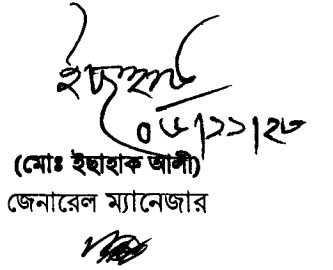 ইছাহাক
০৬/১১/২৩
(মোঃ ইছাহাক আলী)
জেনারেল ম্যানেজার